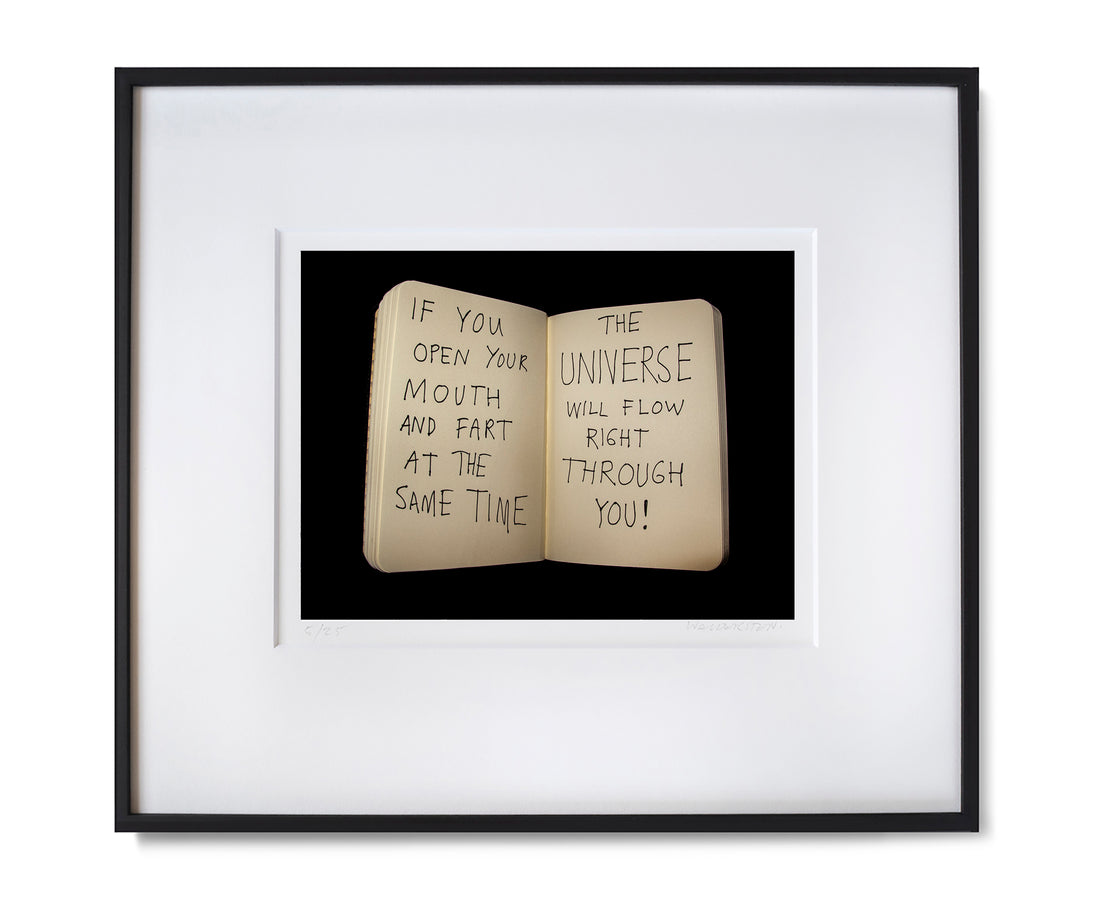 IF YOU
OPEN YOUR
MOUTH
AND FART
AT THE
SAME TIME
THE
UNIVERSE
WILL FLOW
RIGHT
THROUGH
YOU!
5/25